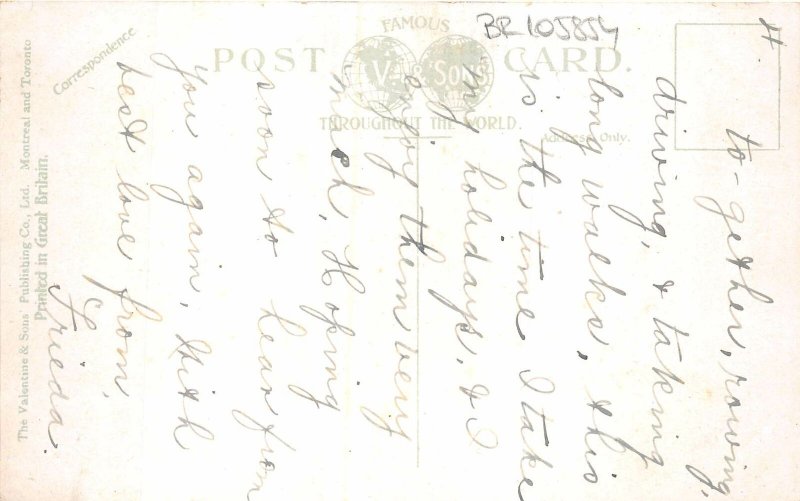 to-gether, rowing,
driving, & taking
long walks, this
is the time I take
my holidays, & I
enjoy them very
much, Hoping
soon to hear from
you again, With
best love from,
Frieda.
4
BR 105854
FAMOUS
POST CARD.
V & SONS
THROUGHOUT THE WORLD.
Address Only.
Correspondence
The Valentine & Sons Publishing Co., Ltd. Montreal and Toronto
Printed in Great Britain.